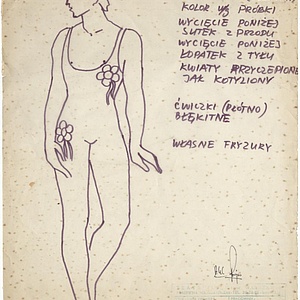 KOLOR WG PRÓBKI
WYCIĘCIE PONIŻEJ
SUTEK Z PRZODU
WYCIĘCIE PONIŻEJ
ŁOPATEK Z TYŁU
KWIATY PRZYCZEPIONE
JAK KOTYLIONY
ĆWICZKI (PŁÓTNO)
BŁĘKITNE
WŁASNE FRYZURY